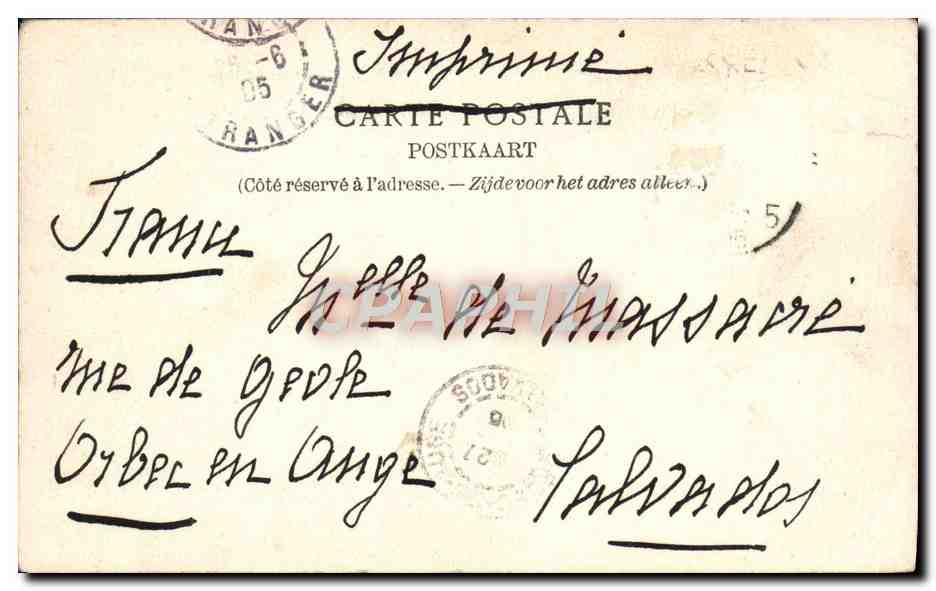 Imprimé
CARTE POSTALE
POSTKAART
(Côté réservé à l'adresse. — Zijde voor het adres alleen.)
France
Melle de Massacré
rue de Geole
Orbec en Auge
Calvados
-6
05
ETRANGER
CALVADOS
27
5
CPAPHIL